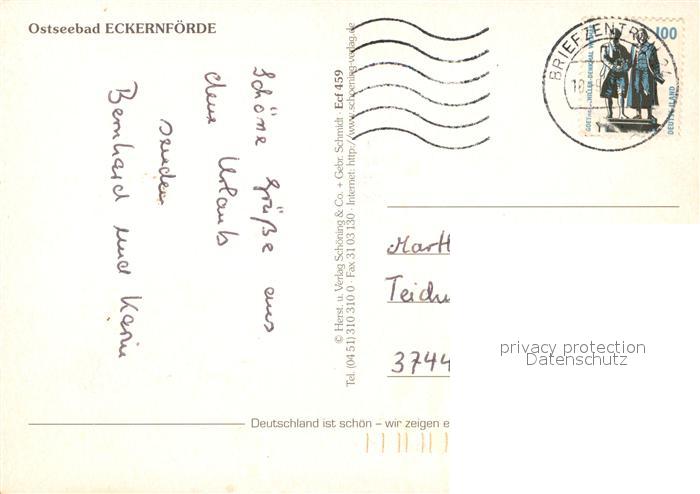 Ostseebad ECKERNFÖRDE
Schöne Grüße aus
dem Urlaub
senden
Bernhard und Karin
© Herst. u. Verlag Schöning & Co. + Gebr. Schmidt · Ecf 459
Tel. (04 51) 310 310 0 · Fax 31 03 130 · Internet: http://www.schoening-verlag.de
BRIEFZENTRUM
100
DEUTSCHLAND
Martl
Teich
3744
privacy protection
Datenschutz
Deutschland ist schön – wir zeigen e